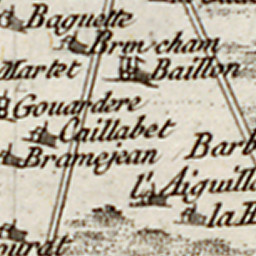 Baguette
Brin cham
Martet
Baillon
Gouardere
Caillabet
Bramejean
Barb
l'Aiguill
la H
ourat